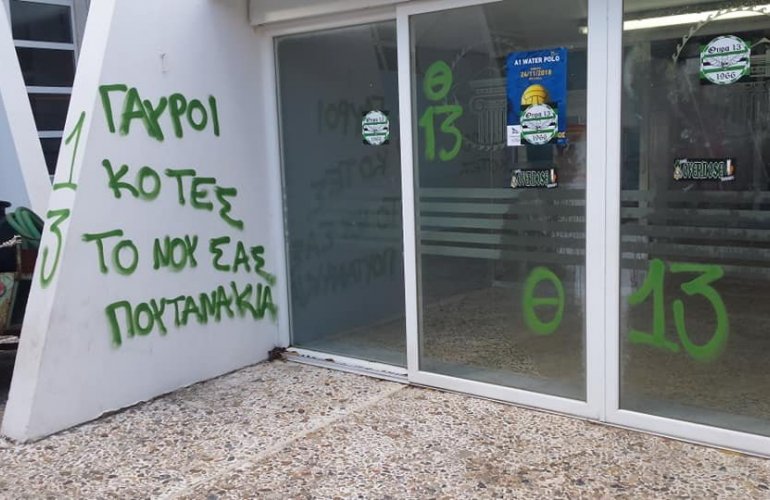 ΓΑΥΡΟΙ
ΚΟΤΕΣ
ΤΟ ΝΟΥ ΣΑΣ
ΠΟΥΤΑΝΑΚΙΑ
13
Θ
13
Θ
13
Θυρα 13
A1 WATER POLO
24/11/2018
Θυρα 13
1966
OVERDOSE
Θυρα 13
1966
OVERDOSE